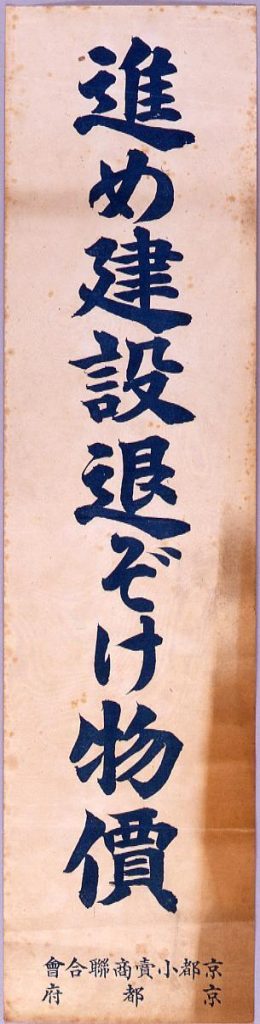 進め建設退ぞけ物價
京都小賣商聯合會
京都府